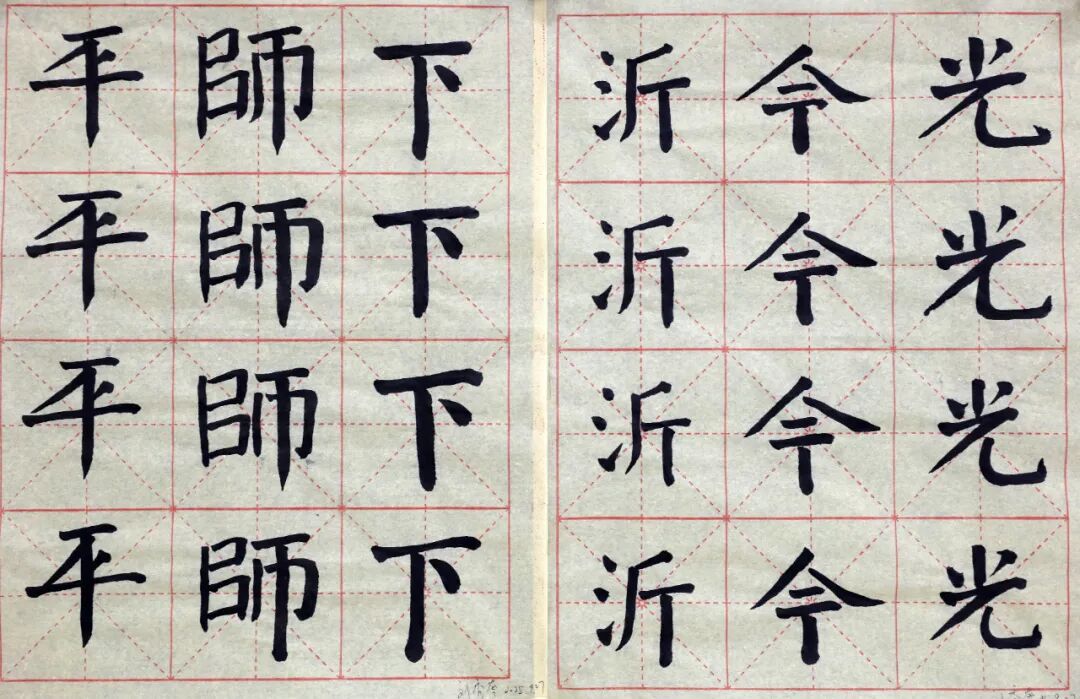 光光光光
今今今今
沂沂沂沂
下下下下
師師師師
平平平平